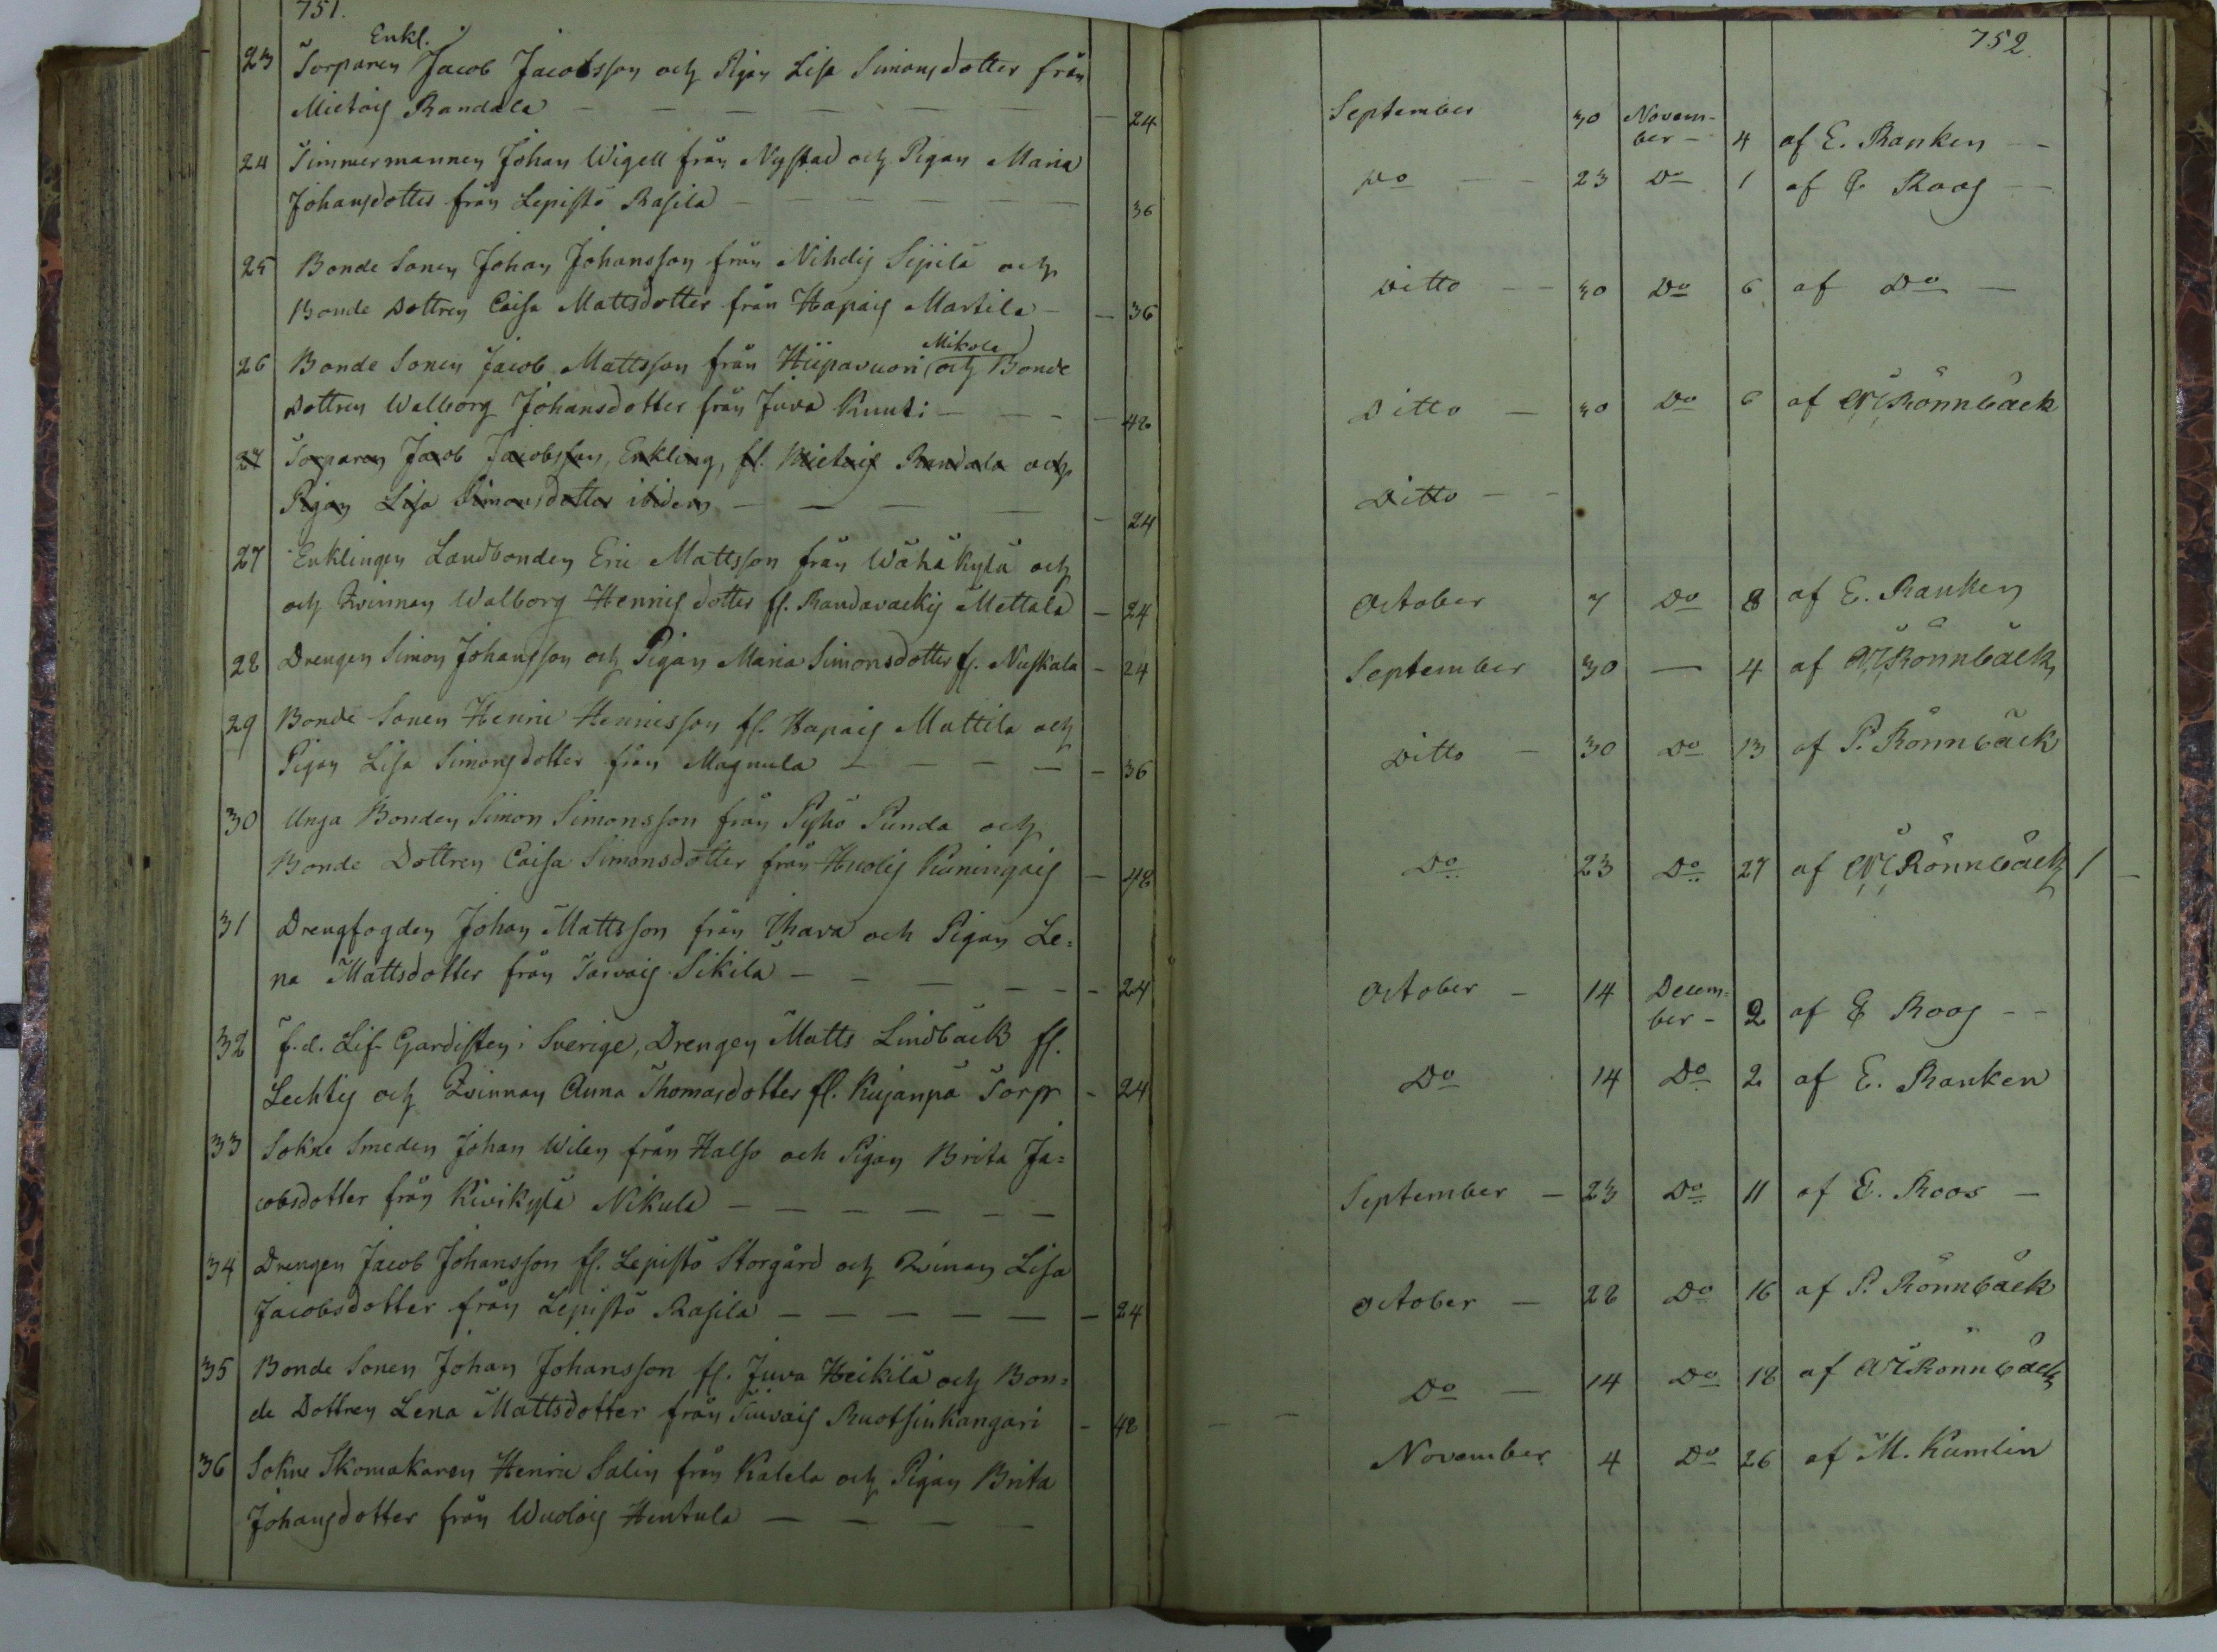 751.
Enkl.
23 Torparen Jacob Jacobsson och Pigan Lisa Simonsdotter från
Mietois Randala — — — — — — 24
24 Timmermannen Johan Wigell från Nystad och Pigan Maria
Johansdotter från Lepistö Rasila — — — — — — 36
25 Bonde Sonen Johan Johansson från Nihdis Sipilä och
Bonde Dottren Caisa Mattsdotter från Hapais Martila — — 36
Mikola
26 Bonde Sonen Jacob Mattsson från Hiipavuori och Bonde
Dottren Walborg Johansdotter från Juva Knuti — — — — 48
27 Torparen Jacob Jacobsson, Enkling, fr. Mietois Randala och
Pigan Lisa Simonsdotter ibidem — — — — — 24
27 Enklingen Landbonden Eric Mattsson från Wähäkylä och
och Qvinnan Walborg Henricsdotter fr. Randavackis Mettala — 24
28 Drengen Simon Johansson och Pigan Maria Simonsdotter fr. Nuskala — 24
29 Bonde Sonen Henric Henricsson fr. Hapais Mattila och
Pigan Lisa Simonsdotter från Magnula — — — — — 36
30 Unga Bonden Simon Simonsson från Pyhö Punda och
Bonde Dottren Caisa Simonsdotter från Huolis Kuningais — 48
31 Drengfogden Johan Mattsson från Ihava och Pigan Le=
na Mattsdotter från Tarvais Sikilä — — — — — — 24
32 f.d. Lif Gardisten i Sverige, Drengen Matts Lindbäck fr.
Lechtis och Qvinnan Anna Thomasdotter fr. Kujanpä Torp — 24
33 Sokne Smeden Johan Wilen från Halso och Pigan Brita Ja=
cobsdotter från Kivikylä Nikula — — — — — —
34 Drengen Jacob Johansson fr. Lepistö Storgård och Qvinan Lisa
Jacobsdotter från Lepistö Rasila — — — — — — 24
35 Bonde Sonen Johan Johansson fr. Juva Heikilä och Bon=
de Dottren Lena Mattsdotter från Tiuvais Ruotsinkangari — 48
36 Sokne Skomakaren Henric Salin från Katela och Pigan Brita
Johansdotter från Wuolais Hentula — — — —
752.
September 30 Novem-
ber — 4 af E. Ranken — —
Do — — 23 Do 1 af E. Roos — —
Ditto — — 30 Do 6 af Do —
Ditto — 30 Do 6 af M Rönnbäck
Ditto — —
October 7 Do 8 af E. Ranken
September 30 — 4 af M Rönnbäck
Ditto — 30 Do 13 af P. Rönnbäck
Do 23 Do 27 af M Rönnbäck 1 —
October — 14 Decem=
ber — 2 af E Roos — —
Do 14 Do 2 af E. Ranken
September — 23 Do 11 af E. Roos —
October — 28 Do 16 af P. Rönnbäck
Do — 14 Do 18 af M Rönnbäck
November 4 Do 26 af M. Kumlin